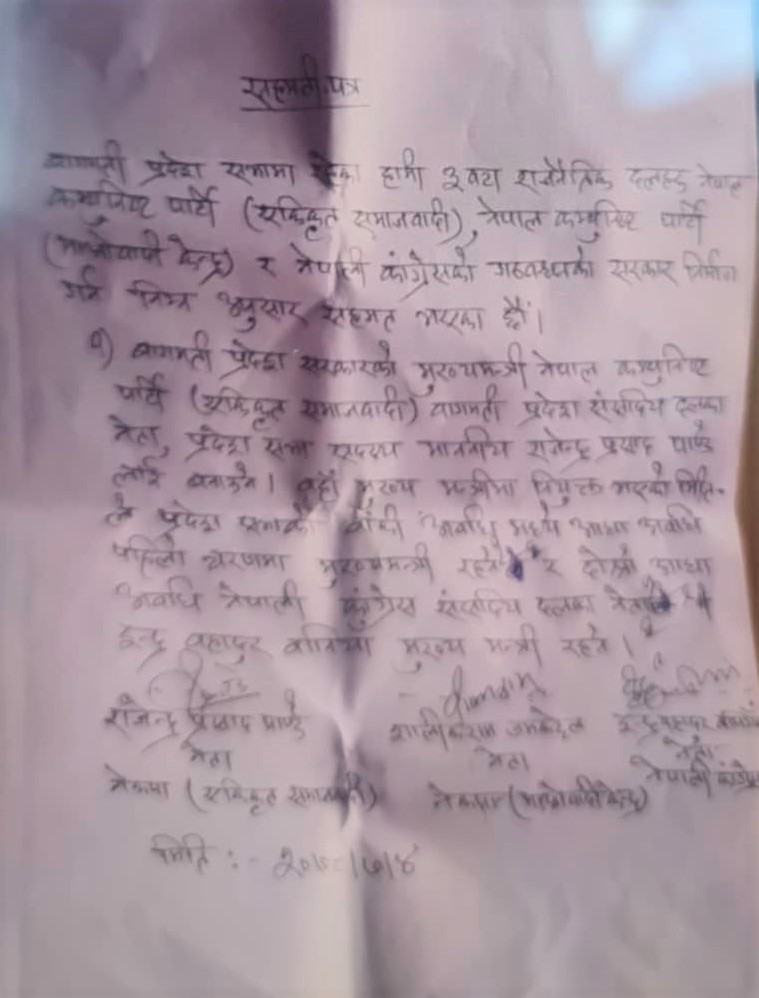 सहमती-पत्र
बागमती प्रदेश सभामा रहेका हामी ३ वटा राजनैतिक दलहरु नेपाल
कम्युनिष्ट पार्टी (एकिकृत समाजवादी), नेपाल कम्युनिष्ट पार्टी
(माओवादी केन्द्र) र नेपाली कांग्रेसको गठवन्धनको सरकार निर्माण
गर्न निम्न अनुसार सहमत भएका छौं।
१) बागमती प्रदेश सरकारको मुख्यमन्त्री नेपाल कम्युनिष्ट
पार्टी (एकिकृत समाजवादी) वागमती प्रदेश संसदिय दलका
नेता, प्रदेश सभा सदस्य माननीय राजेन्द्र प्रसाद पाण्डे
लाई बनाउने। वहाँ मुख्य मन्त्रीमा नियुक्त भएको मिति-
ले प्रदेश सभाको बाँकी अवधि मध्ये आधा अवधि
पहिलो चरणमा मुख्यमन्त्री रहने र दोस्रो आधा
अवधि नेपाली कांग्रेस संसदिय दलका नेता
इन्द्र वहादुर वानिया मुख्य मन्त्री रहने।
राजेन्द्र प्रसाद पाण्डे शालिकराम जमकट्टेल इन्द्र वहादुर वानियाँ
नेता नेता नेता
नेकपा (एकिकृत समाजवादी) नेकपा (माओवादी केन्द्र) नेपाली कांग्रेस
मिति :-